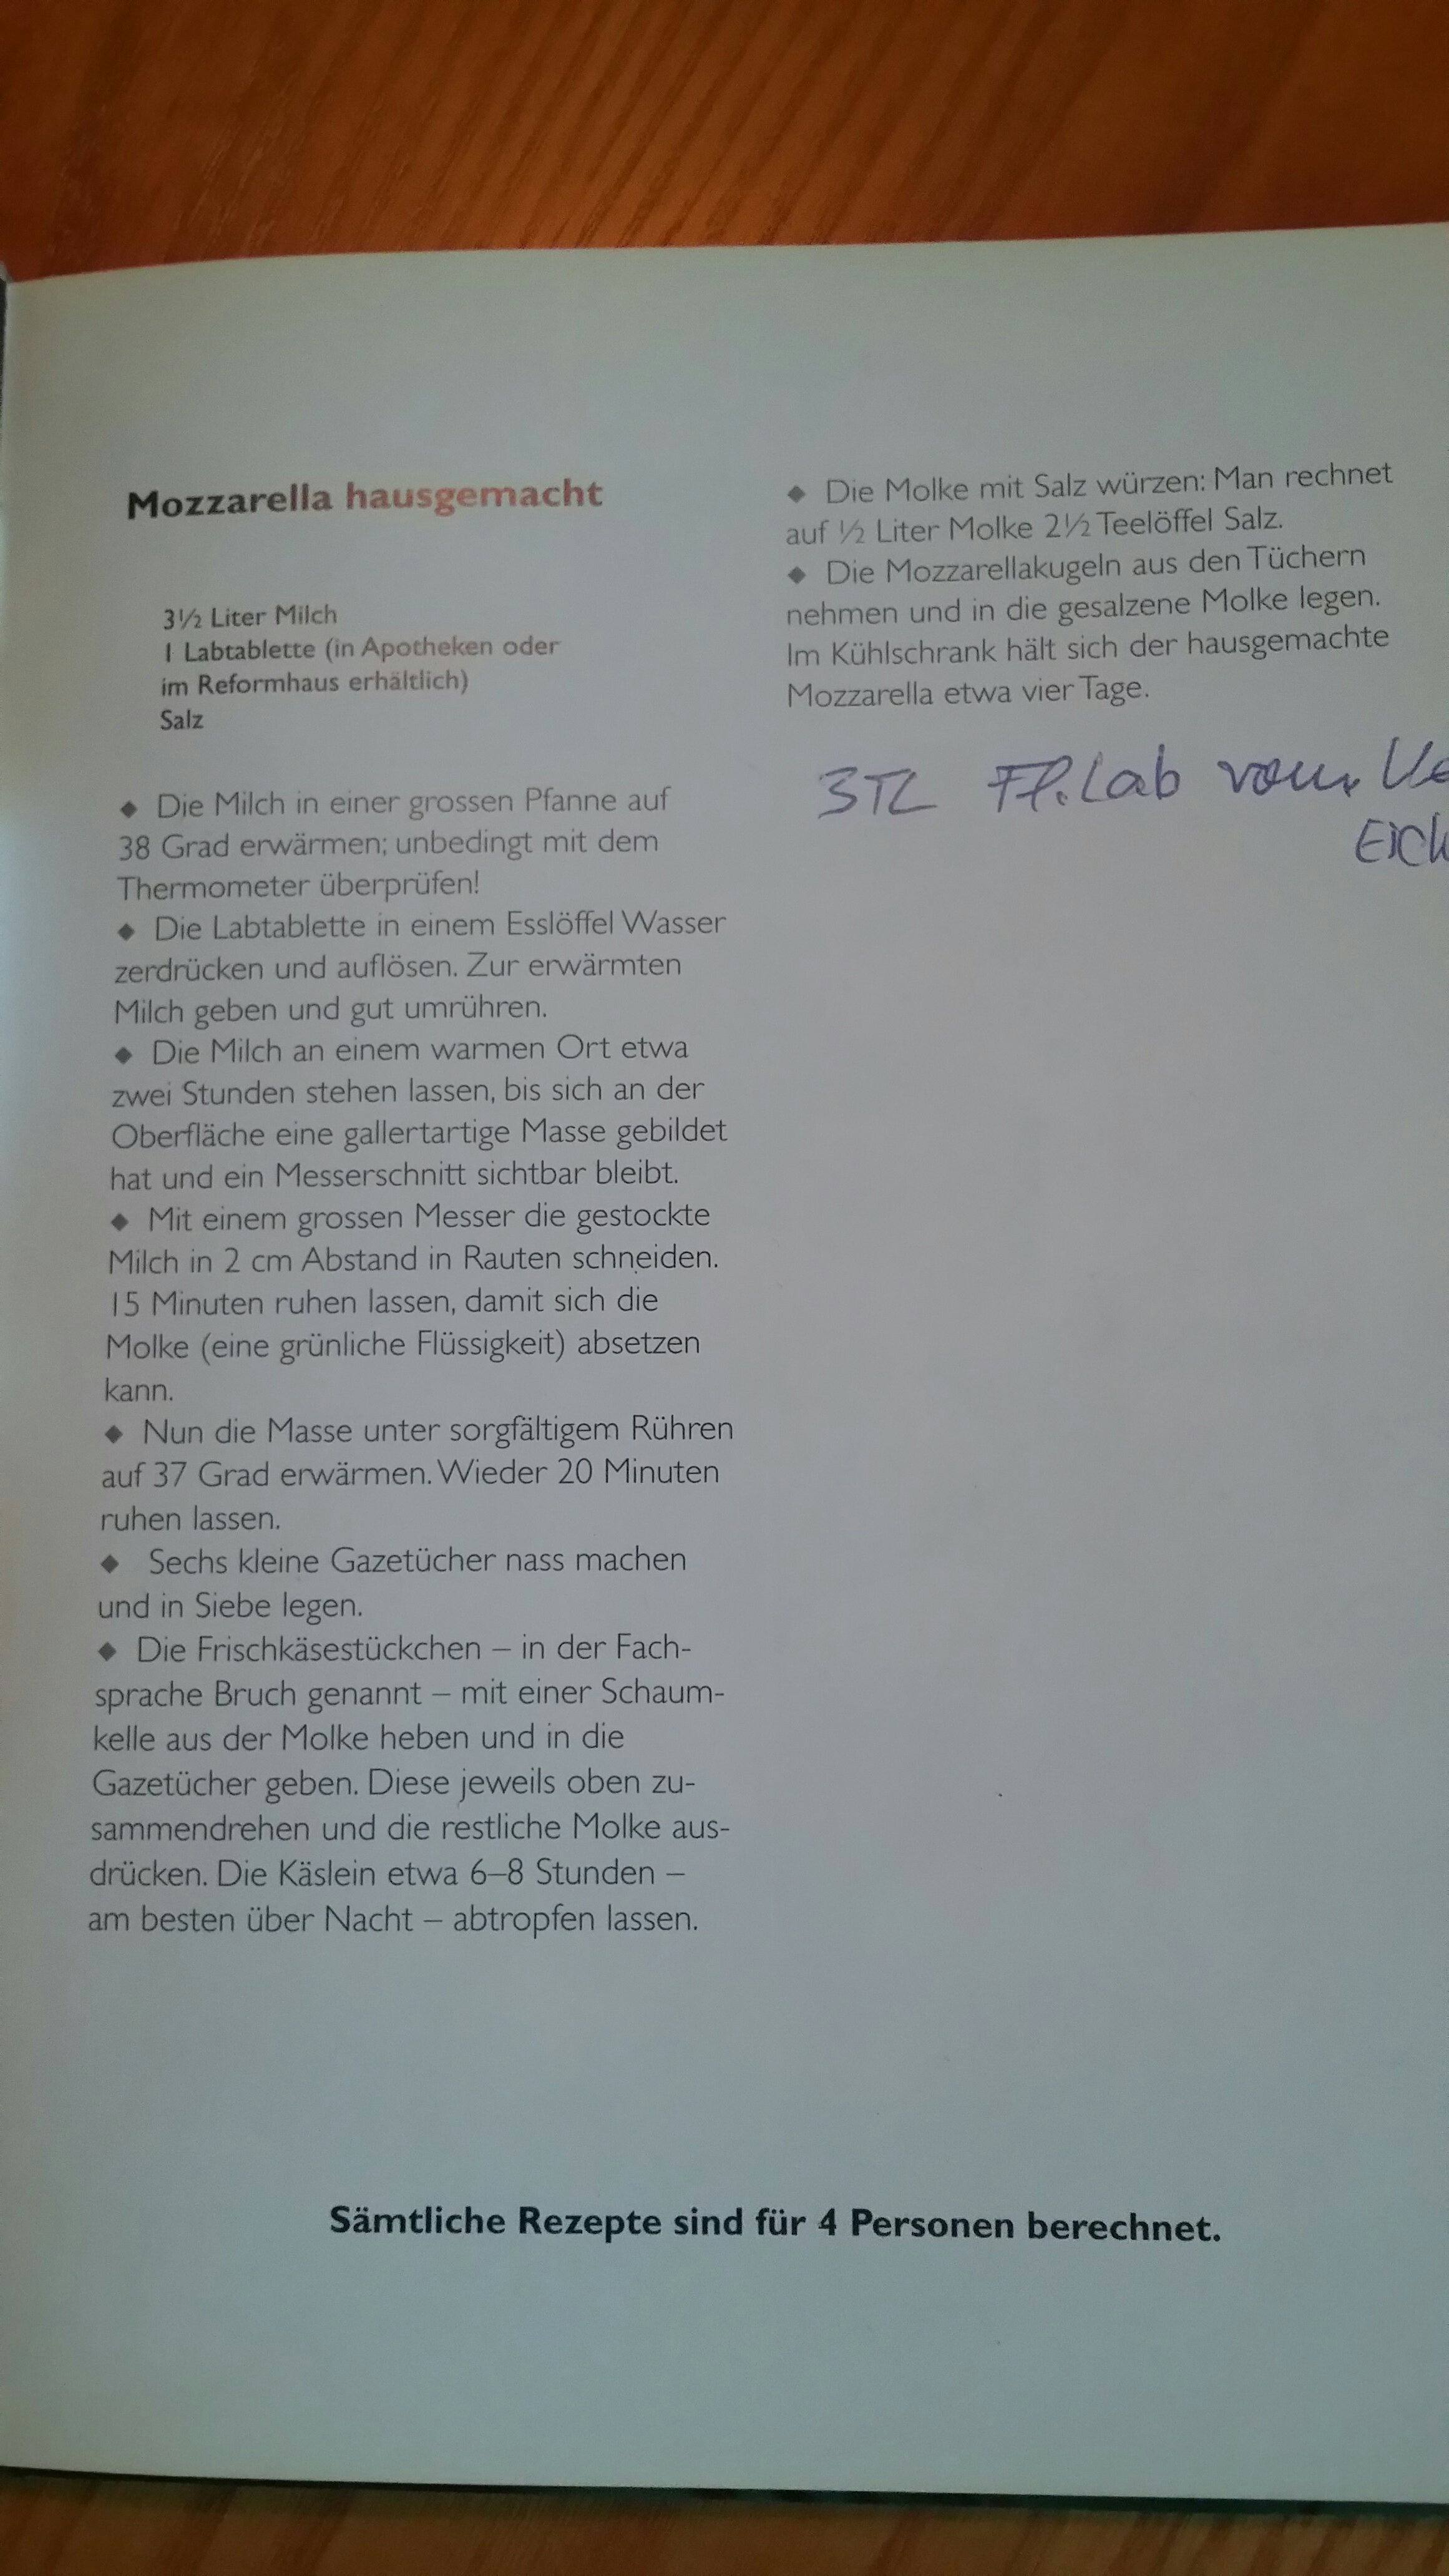 Mozzarella hausgemacht
3½ Liter Milch
1 Labtablette (in Apotheken oder
im Reformhaus erhältlich)
Salz
◆ Die Milch in einer grossen Pfanne auf
38 Grad erwärmen; unbedingt mit dem
Thermometer überprüfen!
◆ Die Labtablette in einem Esslöffel Wasser
zerdrücken und auflösen. Zur erwärmten
Milch geben und gut umrühren.
◆ Die Milch an einem warmen Ort etwa
zwei Stunden stehen lassen, bis sich an der
Oberfläche eine gallertartige Masse gebildet
hat und ein Messerschnitt sichtbar bleibt.
◆ Mit einem grossen Messer die gestockte
Milch in 2 cm Abstand in Rauten schneiden.
15 Minuten ruhen lassen, damit sich die
Molke (eine grünliche Flüssigkeit) absetzen
kann.
◆ Nun die Masse unter sorgfältigem Rühren
auf 37 Grad erwärmen. Wieder 20 Minuten
ruhen lassen.
◆ Sechs kleine Gazetücher nass machen
und in Siebe legen.
◆ Die Frischkäsestückchen – in der Fach-
sprache Bruch genannt – mit einer Schaum-
kelle aus der Molke heben und in die
Gazetücher geben. Diese jeweils oben zu-
sammendrehen und die restliche Molke aus-
drücken. Die Käslein etwa 6–8 Stunden –
am besten über Nacht – abtropfen lassen.
◆ Die Molke mit Salz würzen: Man rechnet
auf ½ Liter Molke 2½ Teelöffel Salz.
◆ Die Mozzarellakugeln aus den Tüchern
nehmen und in die gesalzene Molke legen.
Im Kühlschrank hält sich der hausgemachte
Mozzarella etwa vier Tage.
3TL Fl. Lab vom
Sämtliche Rezepte sind für 4 Personen berechnet.